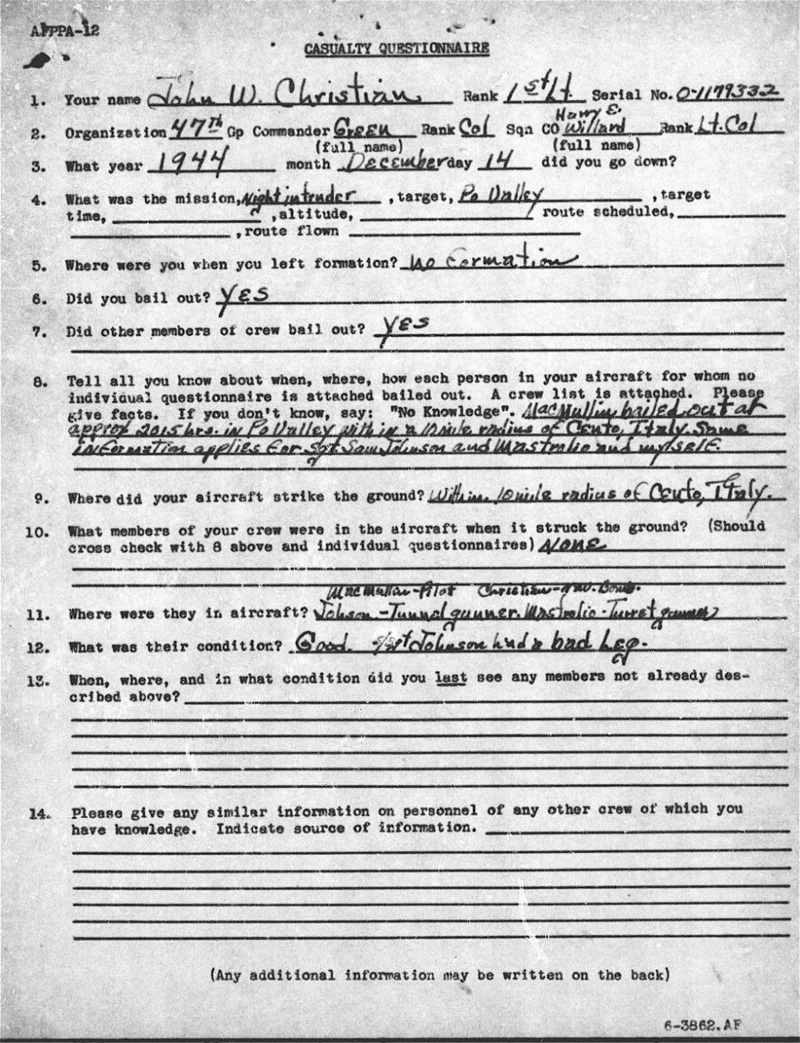 AFPPA-12
CASUALTY QUESTIONNAIRE
1. Your name John W. Christian Rank 1st Lt. Serial No. 0-1179332
Harry E.
2. Organization 47th Gp Commander Green Rank Col Sqn CO Willard Rank Lt. Col
(full name) (full name)
3. What year 1944 month December day 14 did you go down?
4. What was the mission, Night intruder , target, Po Valley , target
time, , altitude, route scheduled,
, route flown
5. Where were you when you left formation? No Formation
6. Did you bail out? YES
7. Did other members of crew bail out? YES
8. Tell all you know about when, where, how each person in your aircraft for whom no
individual questionnaire is attached bailed out. A crew list is attached. Please
give facts. If you don't know, say: "No Knowledge". MacMullin bailed out at
approx 2015 hrs. in Po Valley within a 10 mile radius of Cento, Italy. Same
information applies for Sgt Sam Johnson and Mastralio and myself.
9. Where did your aircraft strike the ground? Within 10 mile radius of Cento, Italy.
10. What members of your crew were in the aircraft when it struck the ground? (Should
cross check with 8 above and individual questionnaires) NONE
MacMullin-Pilot Christian-Nav. Bomb.
11. Where were they in aircraft? Johson-Tunnel gunner. Mastralio-Turret gunner
12. What was their condition? Good. S/Sgt Johnson had a bad Leg.
13. When, where, and in what condition did you last see any members not already des-
cribed above?
14. Please give any similar information on personnel of any other crew of which you
have knowledge. Indicate source of information.
(Any additional information may be written on the back)
6-3862.AF